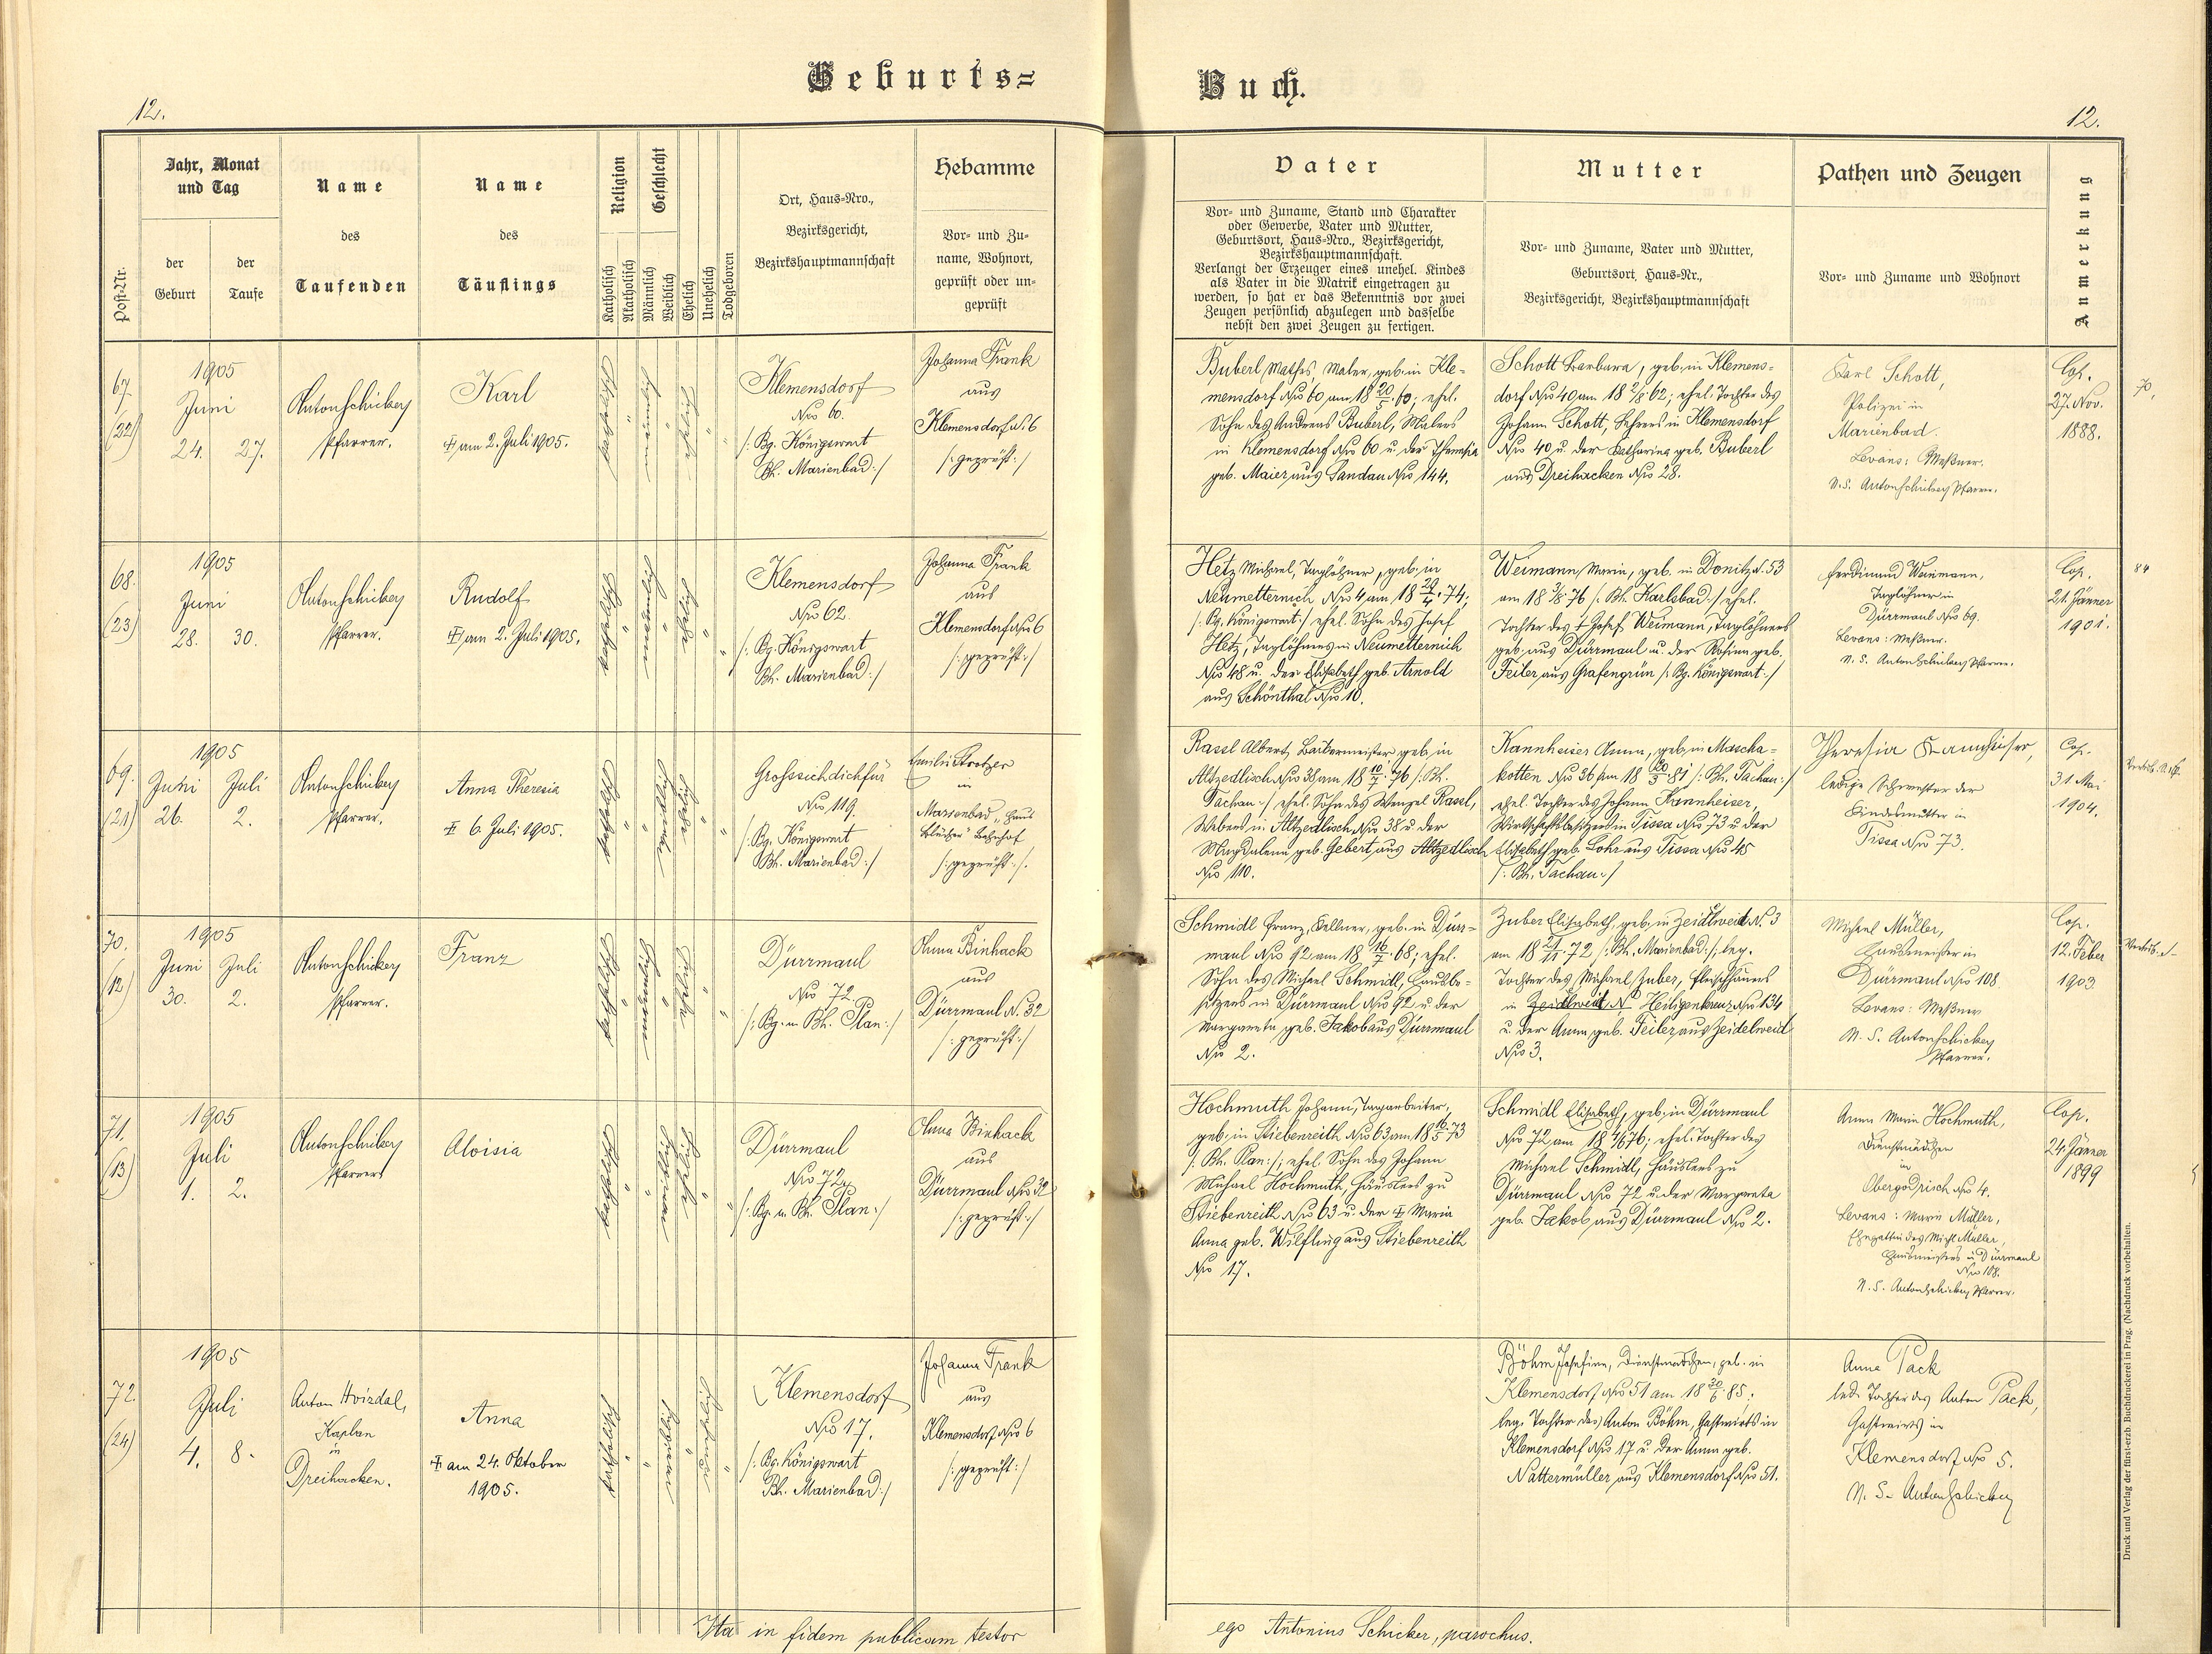 Geburts=
Buch.
12.
12.
Post-Nr.
Jahr, Monat
und Tag
der
Geburt
der
Taufe
Name
des
Taufenden
Name
des
Täuflings
Religion
Katholisch
Akatholisch
Geschlecht
Männlich
Weiblich
Ehelich
Unehelich
Todgeboren
Ort, Haus-Nro.,
Bezirksgericht,
Bezirkshauptmannschaft
Hebamme
Vor- und Zu-
name, Wohnort,
geprüft oder un-
geprüft
Vater
Vor- und Zuname, Stand und Charakter
oder Gewerbe, Vater und Mutter,
Geburtsort, Haus-Nro., Bezirksgericht,
Bezirkshauptmannschaft.
Verlangt der Erzeuger eines unehel. Kindes
als Vater in die Matrik eingetragen zu
werden, so hat er das Bekenntnis vor zwei
Zeugen persönlich abzulegen und dasselbe
nebst den zwei Zeugen zu fertigen.
Mutter
Vor- und Zuname, Vater und Mutter,
Geburtsort, Haus-Nr.,
Bezirksgericht, Bezirkshauptmannschaft
Pathen und Zeugen
Vor- und Zuname und Wohnort
Anmerkung
67.
(22)
1905
Juni
24. 27.
Anton Schicker
Pfarrer.
Karl
am 2. Juli 1905.
katholisch
"
männlich
"
ehelich
"
Klemensdorf
Nro 60.
/: Bg. Königswart
Bh. Marienbad :/
Johanna Frank
aus
Klemensdorf No 6
/: geprüft :/
Buberl Mathes, Maler, geb. in Kle-
mensdorf Nro 60 am 18 20/5 60; ehel.
Sohn des Andreas Buberl, Malers
in Klemensdorf Nro 60 u. der Theresia
geb. Maier aus Sandau Nro 144.
Schott Barbara, geb. in Klemens-
dorf Nro 40 am 18 2/8 62; ehel. Tochter des
Johann Schott, Lehrers in Klemensdorf
Nro 40 u. der Katharina geb. Buberl
aus Dreihacken Nro 28.
Karl Schott,
Polizei in
Marienbad.
Levans: Meßner.
N. S. Anton Schicker Pfarrer.
Cop.
27. Nov.
1888.
70.
68.
(23)
1905
Juni
28. 30.
Anton Schicker
Pfarrer.
Rudolf
am 2. Juli 1905.
katholisch
"
männlich
"
ehelich
"
"
Klemensdorf
Nro 62.
/: Bg. Königswart
Bh. Marienbad :/
Johanna Frank
aus
Klemensdorf Nro 6
/: geprüft :/
Hetz Michael, Taglöhner, geb. in
Neumetternich Nro 4 am 18 29/4 74;
/: Bg. Königswart :/ ehel. Sohn des Josef
Hetz, Taglöhners in Neumetternich
Nro 48 u. der Elisabeth geb. Arnold
aus Schönthal Nro 10.
Weimann Maria, geb. in Donitz N. 53
am 18 3/8 76 /: Bh. Karlsbad :/ ehel.
Tochter des † Josef Weimann, Taglöhners
geb. aus Dürrmaul u. der Rosina geb.
Feiler aus Grafengrün /: Bg. Königswart :/
Ferdinand Weimann,
Taglöhner in
Dürrmaul Nro 69.
Levans: Meßner.
N. S. Anton Schicker Pfarrer.
Cop.
21. Jänner
1901.
84
69.
(21)
1905
Juni Juli
26. 2.
Anton Schicker
Pfarrer.
Anna Theresia
6. Juli 1905.
katholisch
"
"
weiblich
ehelich
"
"
Grosssichdichfür
Nro 119.
/: Bg. Königswart
Bh. Marienbad :/
in
Marienbad, "Haus
Blücher" Bahnhof
/: geprüft :/.
Rassl Albert, Bäckermeister, geb. in
Altzedlisch Nro 38 am 18 10/7 76 /: Bh.
Tachau :/ ehel. Sohn des Wenzel Rassl,
Webers in Altzedlisch Nro 38 u. der
Magdalena geb. Gebert aus Altzedlisch
Nro 110.
Kannheiser Anna, geb. in Mascha-
kotten Nro 36 am 18 20/5 81 /: Bh. Tachau :/
ehel. Tochter des Johann Kannheiser,
Wirtschaftsbesitzers in Tissa Nro 73 u. der
Elisabeth geb. Lohr aus Tissa Nro 45
/: Bh. Tachau :/
Theresia Kannheiser,
ledige Schwester der
Kindesmutter in
Tissa Nro 73.
Cop.
31. Mai
1904.
70.
(12)
1905
Juni Juli
30. 2.
Anton Schicker
Pfarrer.
Franz
katholisch
"
männlich
"
ehelich
"
"
Dürrmaul
Nro 72.
/: Bg. u. Bh. Plan :/
Anna Binhack
aus
Dürrmaul N. 32
/: geprüft :/
Schmidl Franz, Kellner, geb. in Dürr-
maul Nro 92 am 18 16/7 68; ehel.
Sohn des Michael Schmidl, Hausbe-
sitzers in Dürrmaul Nro 92 u. der
Margareta geb. Jakob aus Dürrmaul
Nro 2.
Zuber Elisabeth, geb. in Zeidlweid N. 3
am 18 21/11 72 /: Bh. Marienbad :/; leg.
Tochter des Michael Zuber, Fleischhauers
in Zeidlweid N. Heiligenkreuz Nro 134
u. der Anna geb. Feiler aus Zeidelweid
Nro 3.
Michael Müller,
Hausmeister in
Dürrmaul Nro 108.
Levans: Meßner
N. S. Anton Schicker
Pfarrer.
Cop.
12. Feber
1903
71.
(13)
1905
Juli
1. 2.
Anton Schicker
Pfarrer
Aloisia
katholisch
"
"
weiblich
ehelich
"
"
Dürrmaul
Nro 72
/: Bg. u. Bh. Plan :/
Anna Binhack
aus
Dürrmaul Nro 32
/: geprüft :/
Hochmuth Johann, Tagarbeiter,
geb. in Stiebenreith Nro 63 am 18 16/5 73
/: Bh. Plan :/; ehel. Sohn des Johann
Michael Hochmuth, Häuslers zu
Stiebenreith Nro 63 u. der Maria
Anna geb. Wilfling aus Stiebenreith
Nro 17.
Schmidl Elisabeth, geb. in Dürrmaul
Nro 72 am 18 4/6 76; ehel. Tochter des
Michael Schmidl, Häuslers zu
Dürrmaul Nro 72 u. der Margareta
geb. Jakob aus Dürrmaul Nro 2.
Anna Maria Hochmuth,
Dienstmädchen
in
Obergodrisch Nro 4.
Levans: Marie Müller,
Ehegattin des Michl Müller,
Hausmeisters in Dürrmaul
Nro 108.
N. S. Anton Schicker Pfarrer.
Cop.
24. Jänner
1899
72.
(24)
1905
Juli
4. 8.
Anton Hvizdal,
Kaplan
in
Dreihacken.
Anna
am 24. Oktober
1905.
katholisch
"
"
weiblich
"
unehelich
"
Klemensdorf
Nro 17.
/: Bg. Königswart
Bh. Marienbad :/
Johanna Frank
aus
Klemensdorf Nro 6
/: geprüft :/
Böhm Josefine, Dienstmädchen, geb. in
Klemensdorf Nro 51 am 18 30/6 85;
leg. Tochter des Anton Böhm, Gastwirts in
Klemensdorf Nro 17 u. der Anna geb.
Nattermüller aus Klemensdorf Nro 51.
Anna Pack
led. Tochter des Anton Pack,
Gastwirts in
Klemensdorf Nro 5.
N. S. Anton Schicker
Ita in fidem publicam testor
ego Antonius Schicker, parochus.
Druck und Verlag der fürst-erzb. Buchdruckerei in Prag. (Nachdruck vorbehalten.